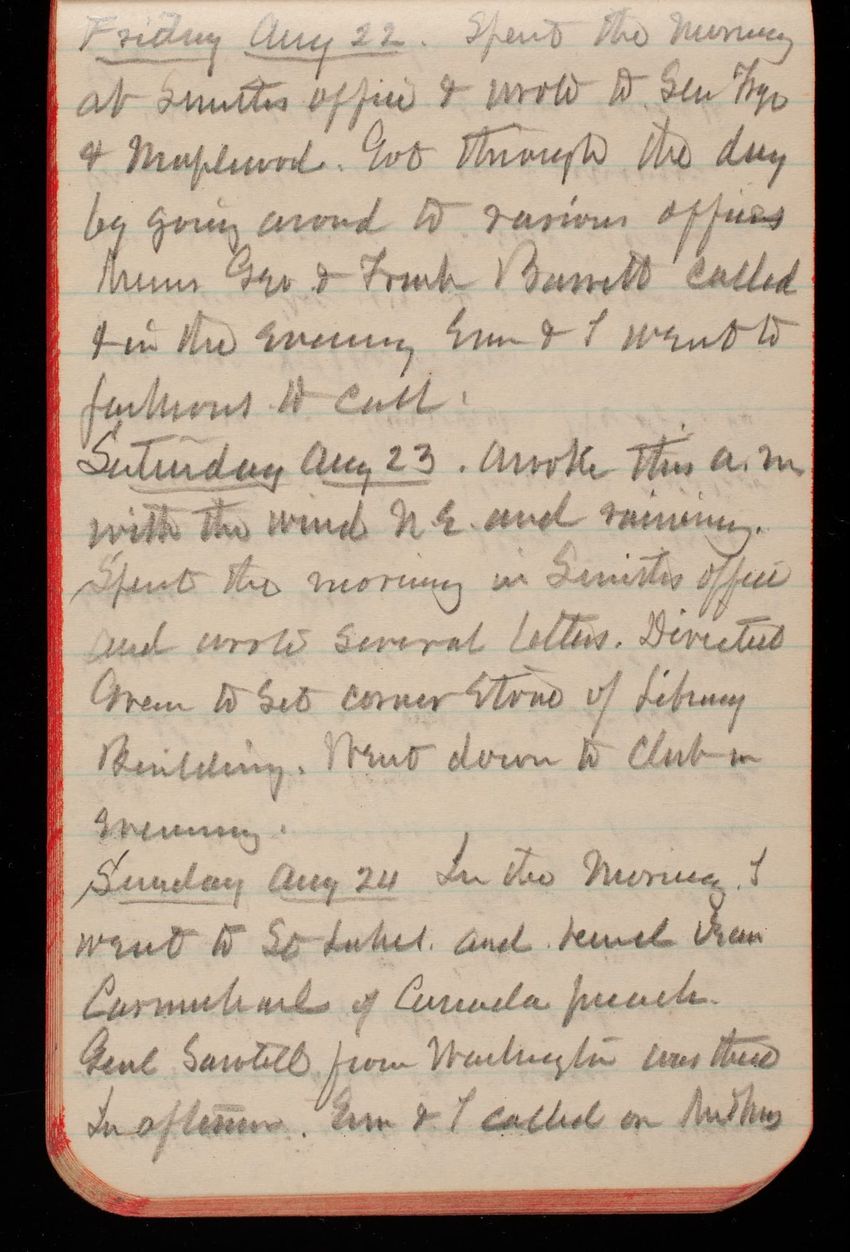 Friday Aug 22. Spent the morning
at Smiths office & wrote to Gen Frye
& Maplewood. Got through the day
by going around to various offices
Geo & Frank Barrett called
& in the evening Em & I went to
to call.
Saturday Aug 23. Awoke this a.m
with the wind N.E. and raining.
Spent the morning in Smiths office
and wrote several letters. Directed
to set corner stone of Library
Building. Went down to Club in
evening.
Sunday Aug 24 In the morning I
went to St Lukes. and heard Dean
Carmichael of Canada preach.
Genl Sawtell from Washington was there
In afternoon. Em & I called on